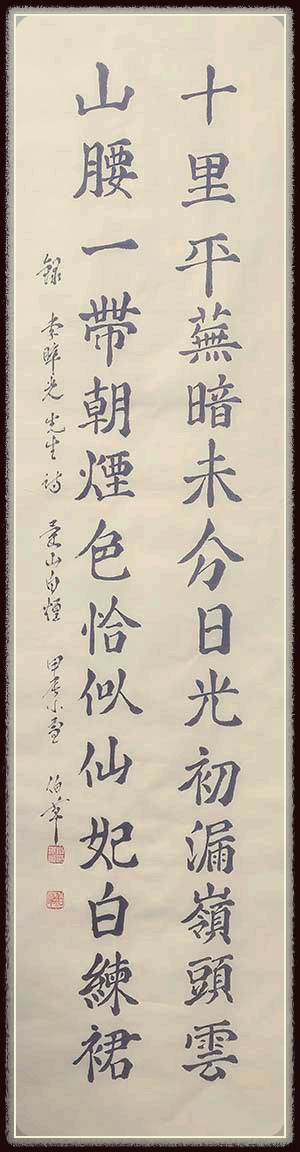 十里平蕪暗未分日光初漏嶺頭雲
山腰一帶朝煙色恰似仙妃白練裙
錄 李睟光先生詩 山白煙 甲辰小雪